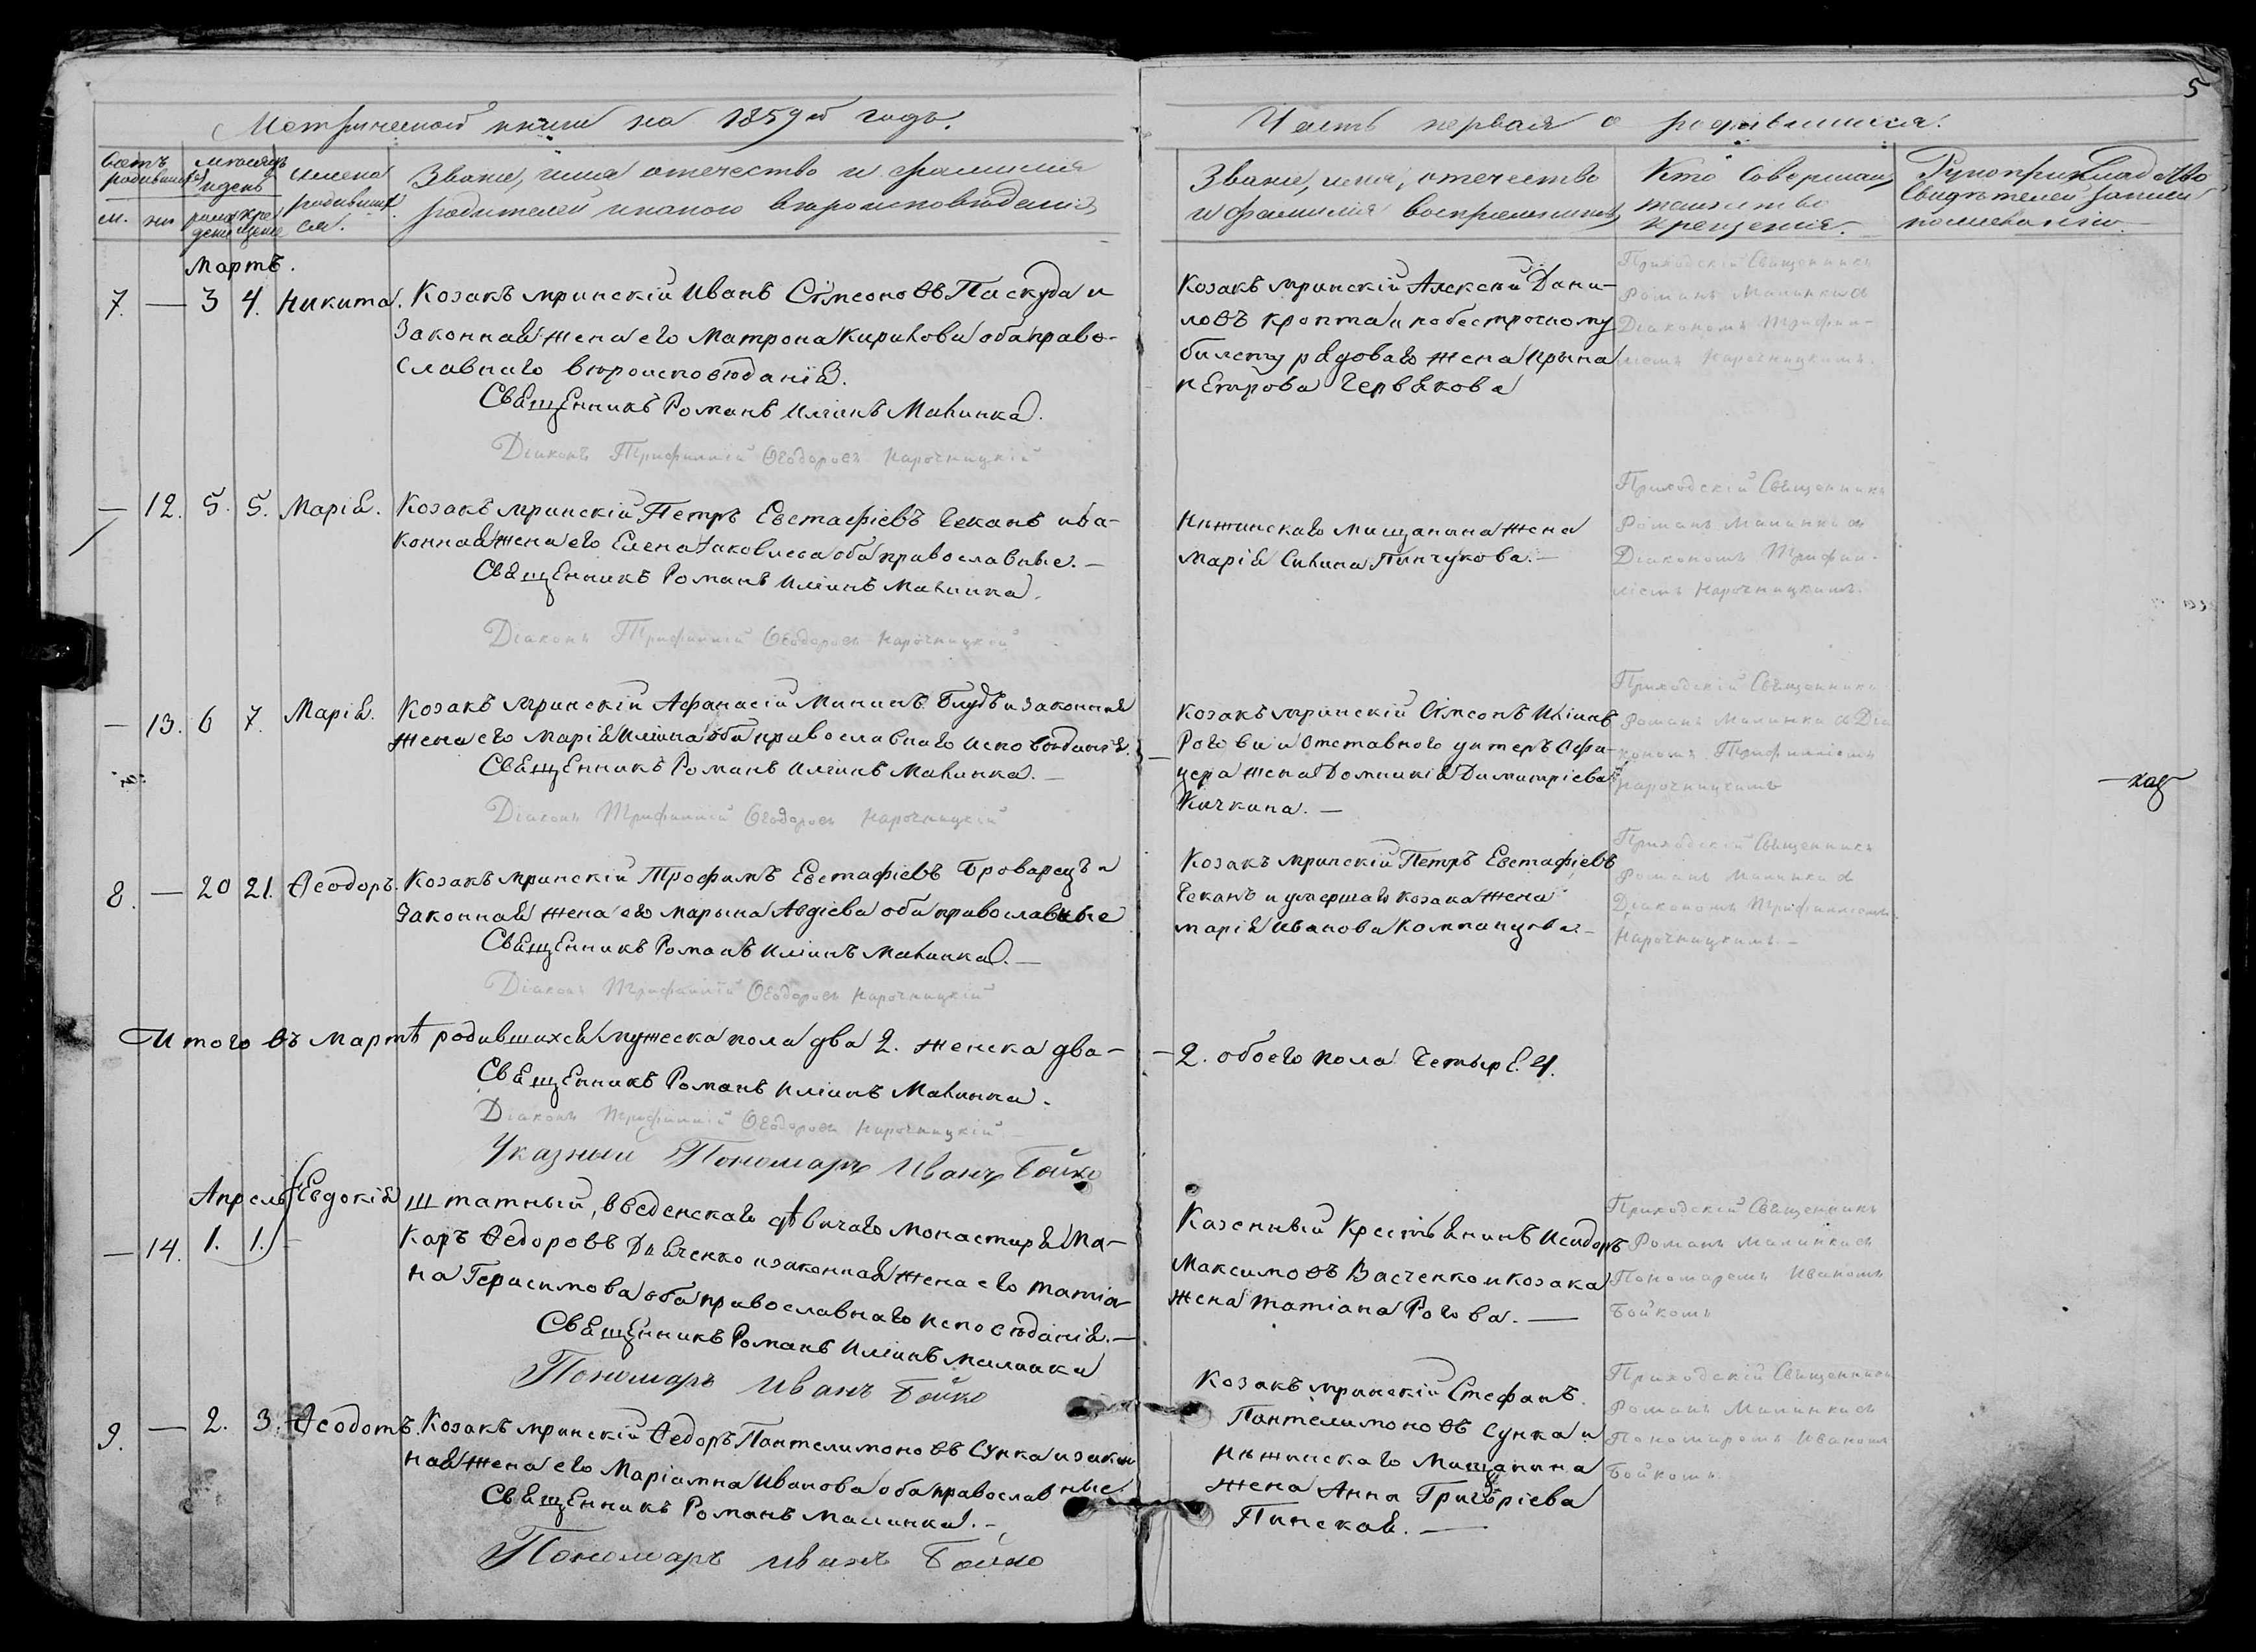 5
Метрической книги на 1859й годъ.
Часть первая о родившихся.
Счетъ родившихся
м. жен
Мѣсяцъ и день
рожденія крещенія
Имена родившихся.
Званіе, имя отечество и фамилія
родителей и какого вѣроисповѣданія
Званіе, имя, отечество
и фамилія воспріемниковъ
Кто совершалъ
таинство
крещенія.
Рукоприкладство
свидѣтелей записи
по желанію
Мартъ.
7. — 3 4. Никита. Козакъ мринскій Иванъ Сѵмеоновъ Паскуда и
законная жена его Матрона Кирилова оба право-
славнаго вѣроисповѣданія.
Священникъ Романъ Иліинъ Малинка.
Діаконъ Трифиллій Ѳеодоровъ Нарочницкій
Козакъ мринскій Алексѣй Дани-
ловъ Кропта и по безсрочному
билету рядоваго жена Ирына
Петрова Червякова
Приходскій Священникъ
Романъ Малинка съ
Діакономъ Трифил-
ліемъ Нарочницкимъ.
— 12. 5. 5. Марія. Козакъ мринскій Петръ Евстафіевъ Чеканъ и за-
конная жена его Елена Іаковлева оба православные. —
Священникъ Романъ Иліинъ Малинка.
Діаконъ Трифиллій Ѳеодоровъ Нарочницкій
Нѣжинскаго мищанина жена
Марія Силина Пинчукова. —
Приходскій Священникъ
Романъ Малинка съ
Діакономъ Трифил-
ліемъ Нарочницкимъ.
— 13. 6 7. Марія. Козакъ мринскій Афанасій Мининъ Блудъ и законная
жена его Марія Иліина оба православнаго исповѣданія.
Священникъ Романъ Иліинъ Малинка. —
Діаконъ Трифиллій Ѳеодоровъ Нарочницкій
Козакъ мринскій Сѵмеонъ Иліинъ
Рогови и отставного унтеръ офи-
цера жена Домникія Димитріева
Кичкина. —
Приходскій Священникъ
Романъ Малинка съ Діа
кономъ Трифилліемъ
Нарочницкимъ
8. — 20 21. Ѳеодоръ. Козакъ мринскій Трофимъ Евстафіевъ Броварецъ и
законная жена его Марына Авдіева оба православные
Священникъ Романъ Иліинъ Малинка. —
Діаконъ Трифиллій Ѳеодоровъ Нарочницкій
Козакъ мринскій Петръ Евстафіевъ
Чеканъ и умершаго козака жена
Марія Иванова
Приходскій Священникъ
Романъ Малинка съ
Діакономъ Трифилліемъ
Нарочницкимъ. —
Итого въ Мартѣ родившихся мужеска пола два 2. женска два —
— 2. обоего пола четыре. 4.
Священникъ Романъ Иліинъ Малинка.
Діаконъ Трифиллій Ѳеодоровъ Нарочницкій
Указный Пономарь Иванъ Бойко
Апрель
— 14. 1. 1. Евдокія Штатный, введенскаго дѣвичаго монастиря Ма-
каръ Ѳедоровъ Дяченко и законная жена его Татіа-
на Герасимова оба православнаго исповѣданія. —
Священникъ Романъ Иліинъ Малинка
Пономарь Иванъ Бойко
Казенный Крестьянинъ Исидоръ
Максимовъ Васченко и козака
жена Татіана Рогова. —
Приходскій Священникъ
Романъ Малинка съ
Пономаремъ Иваномъ
Бойкомъ
9. — 2. 3. Ѳеодотъ. Козакъ мринскій Ѳедоръ Пантелимоновъ Сунка и закон
ная жена его Маріамна Иванова оба православные
Священникъ Романъ Малинка. —
Пономарь Иванъ Бойко
Козакъ мринскій Стефанъ
Пантелимоновъ Сунка и
Нѣжинскаго Мищанина
жена Анна Григоріева
Пинская. —
Приходскій Священникъ
Романъ Малинка съ
Пономаремъ Иваномъ
Бойкомъ